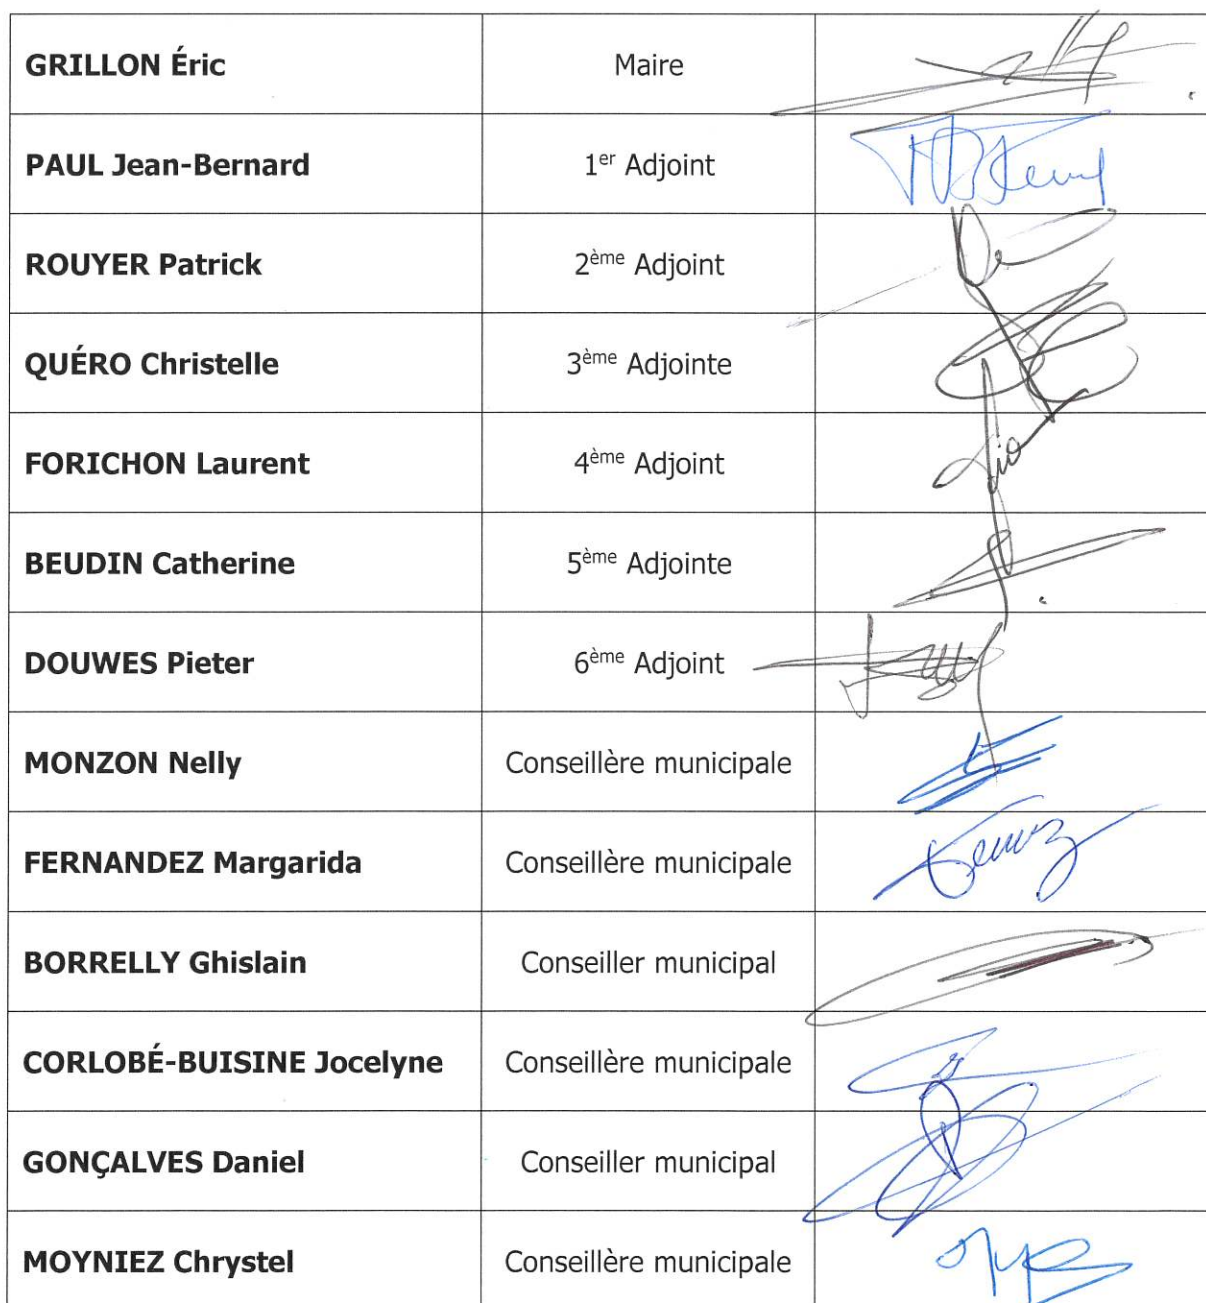 GRILLON Éric Maire
PAUL Jean-Bernard 1er Adjoint
ROUYER Patrick 2ème Adjoint
QUÉRO Christelle 3ème Adjointe
FORICHON Laurent 4ème Adjoint
BEUDIN Catherine 5ème Adjointe
DOUWES Pieter 6ème Adjoint
MONZON Nelly Conseillère municipale
FERNANDEZ Margarida Conseillère municipale
BORRELLY Ghislain Conseiller municipal
CORLOBÉ-BUISINE Jocelyne Conseillère municipale
GONÇALVES Daniel Conseiller municipal
MOYNIEZ Chrystel Conseillère municipale